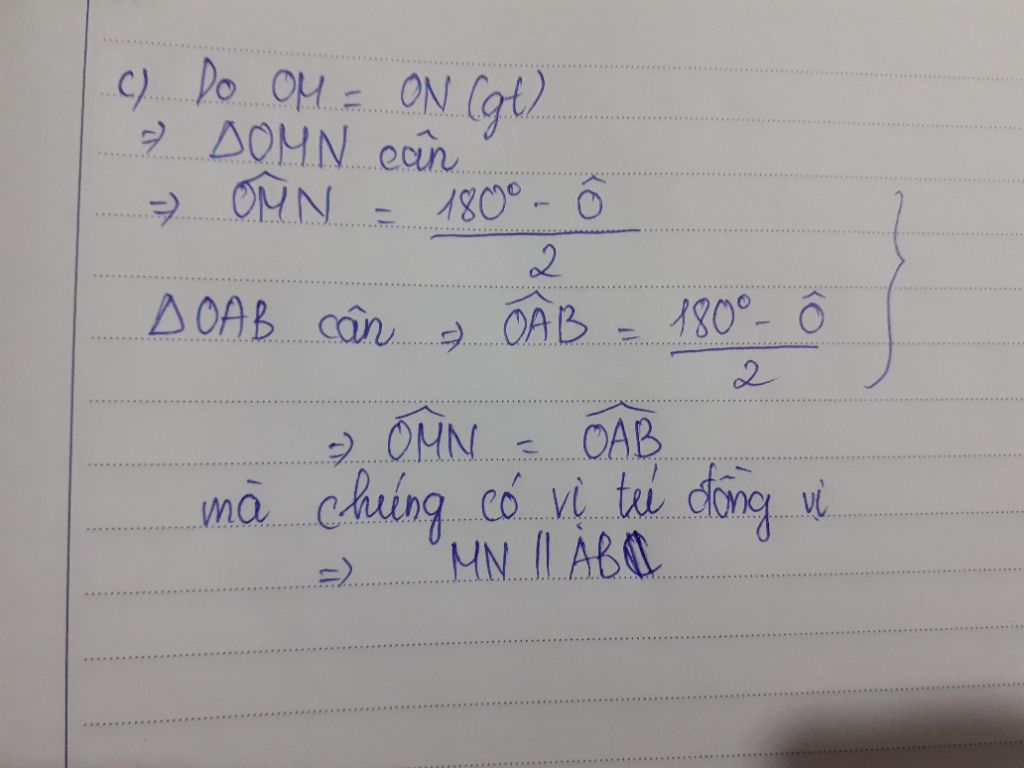 c) Do OM = ON (gt)
⇒ ΔOMN cân
⇒ $\widehat{OMN} = \frac{180° - \hat{O}}{2}$
ΔOAB cân ⇒ $\widehat{OAB} = \frac{180° - \hat{O}}{2}$ }
⇒ $\widehat{OMN} = \widehat{OAB}$
mà chúng có vị trí đồng vị
⇒ MN // AB